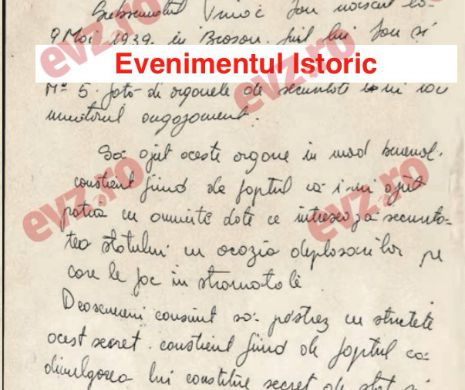 Subsemnatul Vinoc Ion născut la
9 Mai 1929 în Brașov. fiul lui Ion și
evz.ro
Evenimentul Istoric
Nº 5. față de organele de securitate îmi iau
următorul angajament.
Să ajut aceste organe în mod benevol.
conștient fiind de faptul că îmi ajut
patria cu anumite date ce interesează securita-
tea statului cu ocazia deplasărilor pe
care le fac în străinătate.
evz.ro
evz.ro
Deasemeni consimt să păstrez cu strictețe
acest secret. conștient fiind de faptul că
divulgarea lui constitue secret de stat și
evz.ro
evz.ro